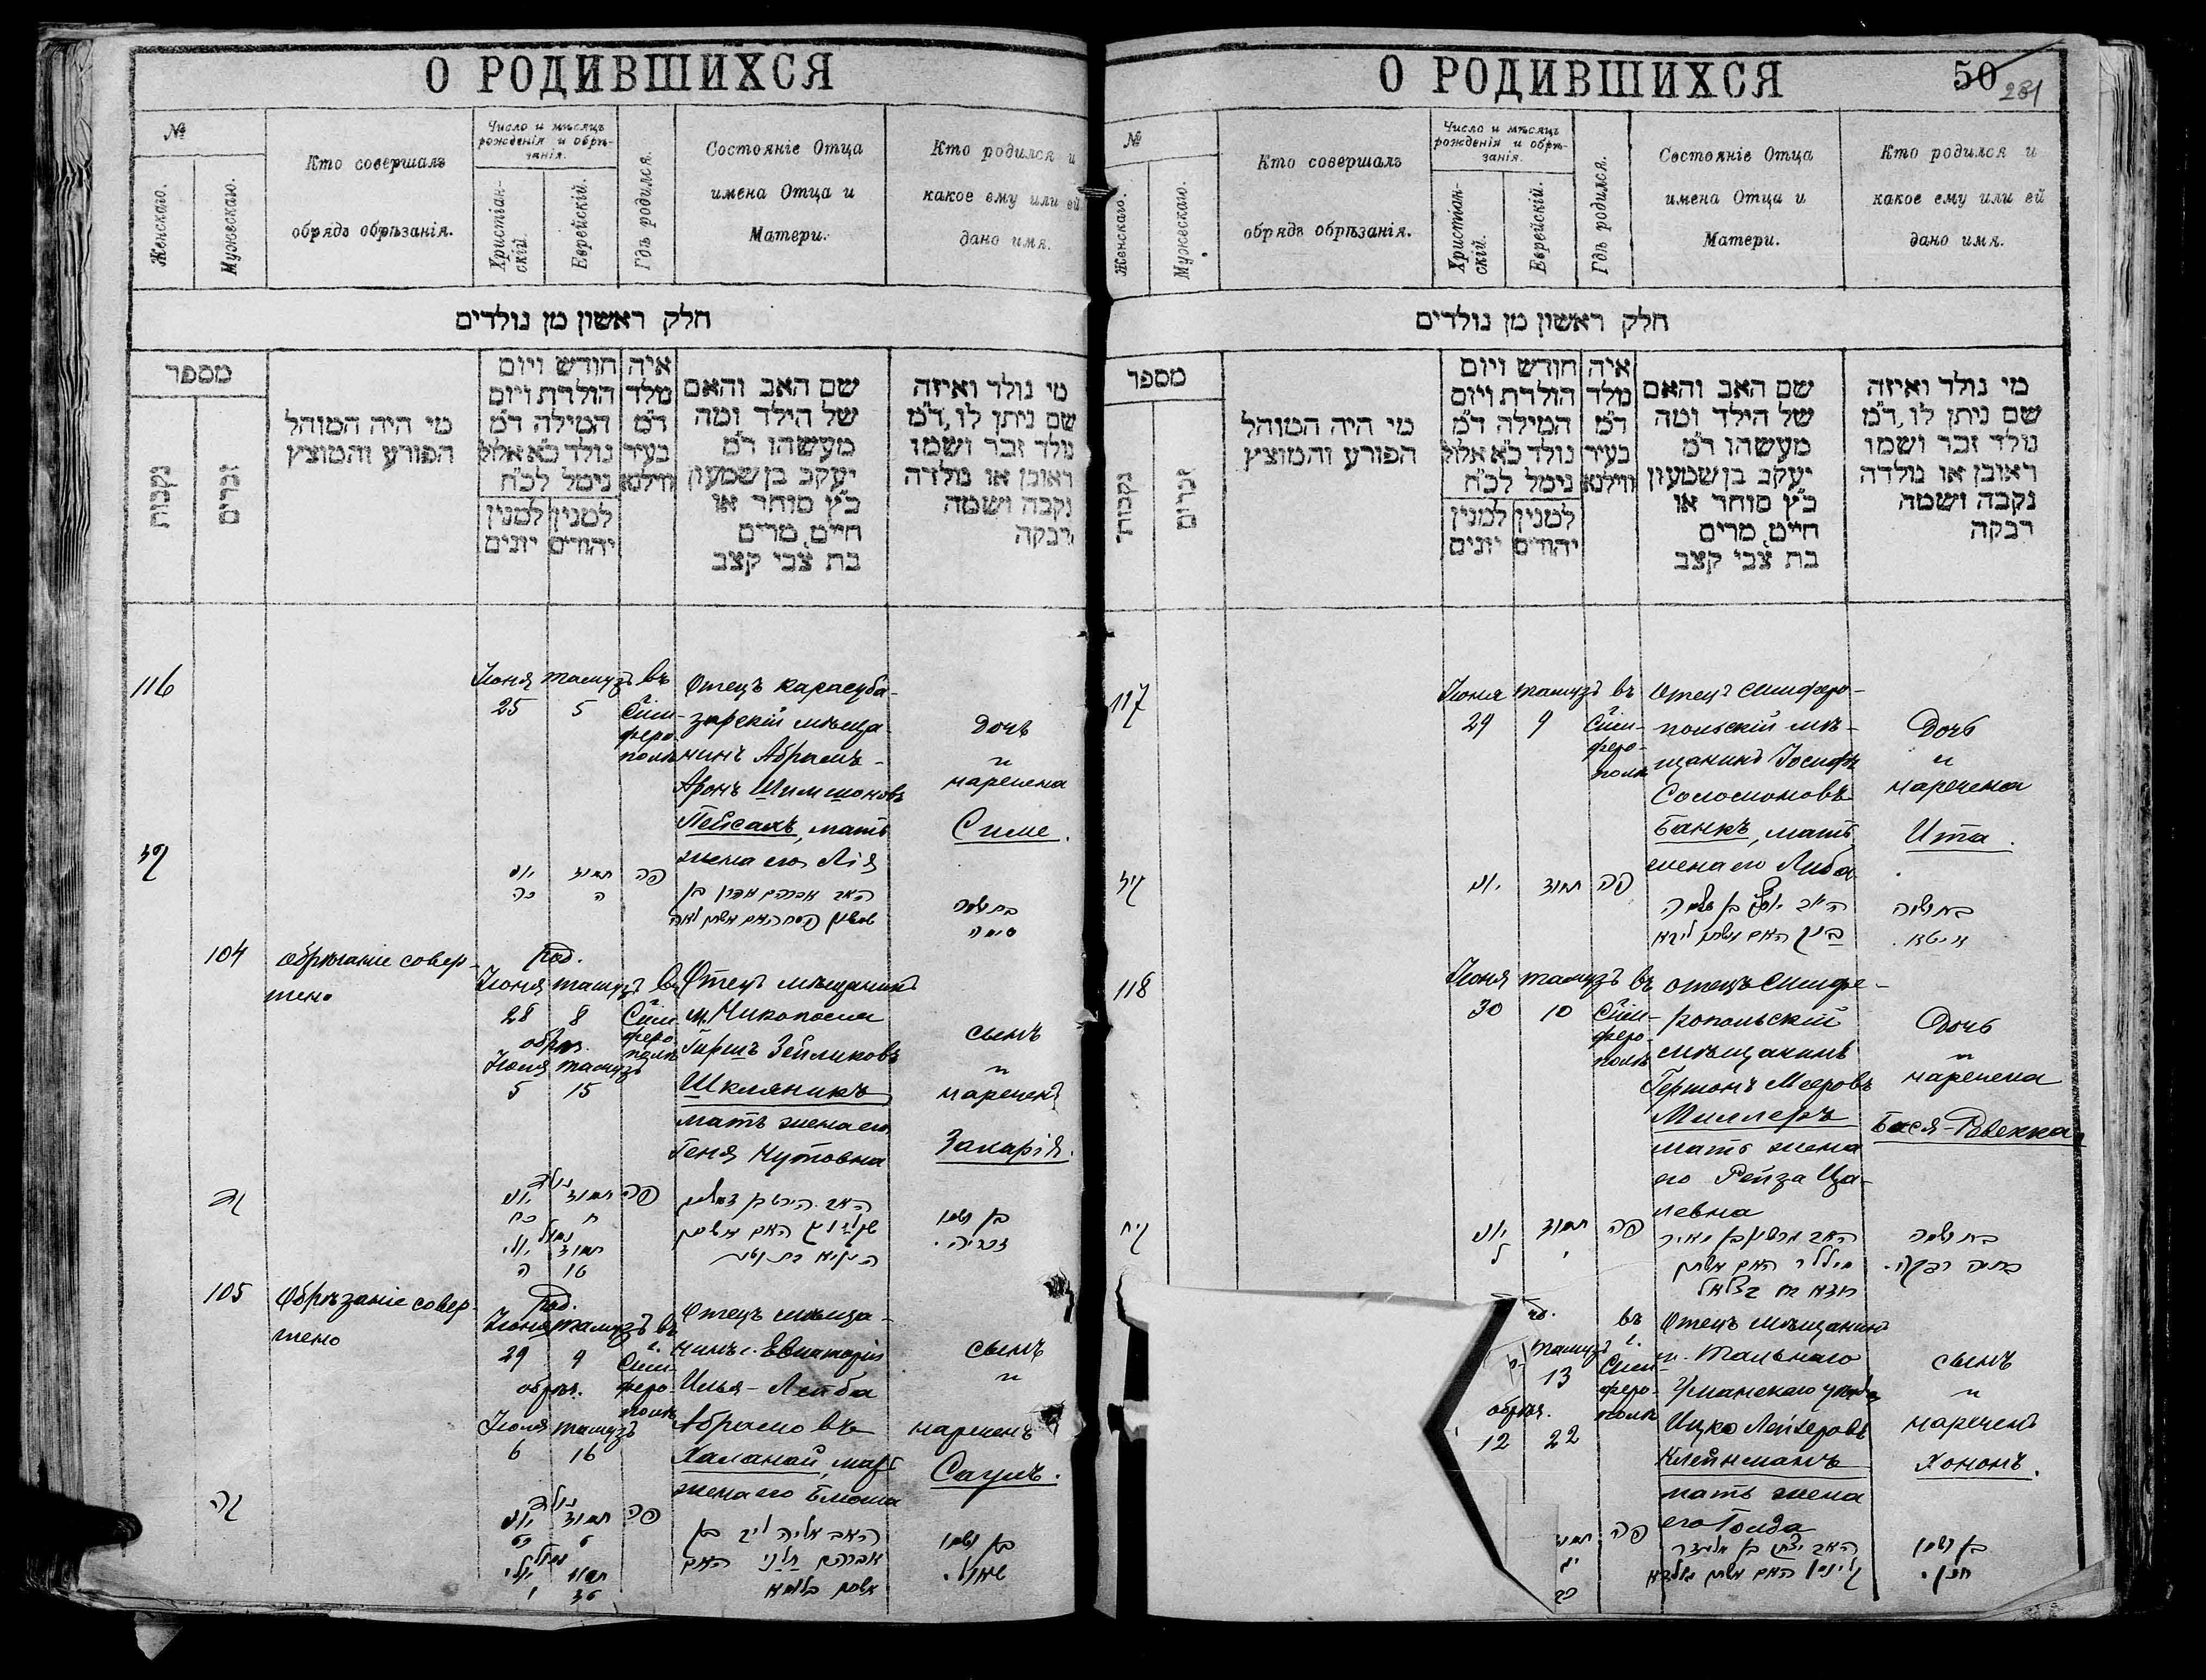 О РОДИВШИХСЯ
№
Женскаго.
Мужескаго.
Кто совершалъ
обрядъ обрѣзанія.
Число и мѣсяцъ
рожденія и обрѣ-
занія.
Христіан-
скій.
Еврейскій.
Гдѣ родился.
Состояніе Отца
имена Отца и
Матери.
Кто родился и
какое ему или ей
дано имя.
חלק ראשון מן נולדים
מספר
נקבות
זכרים
מי היה המוהל
הפורע והמוצץ
חודש ויום
הולדת ויום
המילה ד״מ
נולד כ״א אלול
נימל לכ״ח
למנין
יהודים
למנין
יונים
איה
מלד
ד״מ
בעיר
ווילנא
שם האב והאם
של הילד ומה
מעשהו ד״מ
יעקב בן שמעון
כ״ץ סוחר או
חייט, מרים
בת צבי קצב
מי נולד ואיזה
שם ניתן לו, ד״מ
נולד זכר ושמו
ראובן או נולדה
נקבה ושמה
רבקה
116
Іюня
25
тамузъ
5
въ
г.
Сим-
феро-
полѣ
Отецъ карасуба-
зарскій мѣща-
нинъ Абрамъ-
Аронъ Шимшоновъ
Пейсахъ, мать
жена его Лія
Дочь
и
наречена
Симе.
תמוז
ה
כה
פה
האב אברהם אהרן בן
שמשון פסח האם אשתו לאה
בת ושמה
סימה
104
Обрѣзаніе совер-
шено
род.
Іюня
28
тамузъ
8
обрѣз.
Іюля
5
тамузъ
15
въ
г.
Сим-
феро-
полѣ
Отецъ мѣщанинъ
м. Никополя
Гиршъ Зейликовъ
Шкляникъ
мать жена его
Геня Нутовна
сынъ
и
нареченъ
Захарія.
קד
נולד
תמוז
ח
כח
נמול
תמוז
16
יולי
ה
פה
האם אשתו
בן ושמו
זכריה.
105
Обрѣзаніе совер-
шено
род.
Іюня
29
тамузъ
9
обрѣз.
Іюля
6
тамузъ
16
въ
г.
Сим-
феро-
полѣ
Отецъ мѣща-
нинъ г. Евпаторіи
Илья-Лейба
Абрамовъ
Халанай, мать
жена его Блюма
сынъ
и
нареченъ
Саулъ.
קה
נולד
תמוז
ט
כט
נמול
תמוז
יולי
ו
פה
האב אליה ליב בן
אברהם חלני האם
אשתו בלומא
בן ושמו
שאול.
О РОДИВШИХСЯ
50
281
№
Женскаго.
Мужескаго.
Кто совершалъ
обрядъ обрѣзанія.
Число и мѣсяцъ
рожденія и обрѣ-
занія.
Христіан-
скій.
Еврейскій.
Гдѣ родился.
Состояніе Отца
имена Отца и
Матери.
Кто родился и
какое ему или ей
дано имя.
חלק ראשון מן נולדים
מספר
נקבות
זכרים
מי היה המוהל
הפורע והמוצץ
חודש ויום
הולדת ויום
המילה ד״מ
נולד כ״א אלול
נימל לכ״ח
למנין
יהודים
למנין
יונים
איה
מלד
ד״מ
בעיר
ווילנא
שם האב והאם
של הילד ומה
מעשהו ד״מ
יעקב בן שמעון
כ״ץ סוחר או
חייט, מרים
בת צבי קצב
מי נולד ואיזה
שם ניתן לו, ד״מ
נולד זכר ושמו
ראובן או נולדה
נקבה ושמה
רבקה
117
Іюня
29
тамузъ
9
въ
г.
Сим-
феро-
полѣ
Отецъ симферо-
польскій мѣ-
щанинъ Іосифъ
Соломоновъ
Банкъ, мать
жена его Либа
Дочь
и
наречена
Ита.
קיז
תמוז
פה
האב יוסף בן שלמה
בנק האם אשתו ליבא
בת ושמה
איטא.
118
Іюня
30
тамузъ
10
въ
г.
Сим-
феро-
полѣ
отецъ симфе-
ропольскій
мѣщанинъ
Гершонъ Мееровъ
Миллеръ
мать жена
его Рейза Ца-
левна
Дочь
и
наречена
Бася-Ревекка
קיח
תמוז
י
ל
פה
האב גרשון בן מאיר
מיללר האם אשתו
רוזא בת בצלאל
בת ושמה
בתיה רבקה.
тамузъ
13
обрѣз.
12
22
въ
г.
Сим-
феро-
полѣ
Отецъ мѣщанинъ
м. Тальнаго
Уманскаго уѣзда
Ицко Лейзеровъ
Клейнманъ
мать жена
его Голда
сынъ
и
нареченъ
Хононъ.
תמוז
יג
פה
האב יצחק בן אליעזר
קליינמן האם אשתו גאלדא
בן ושמו
חנן.